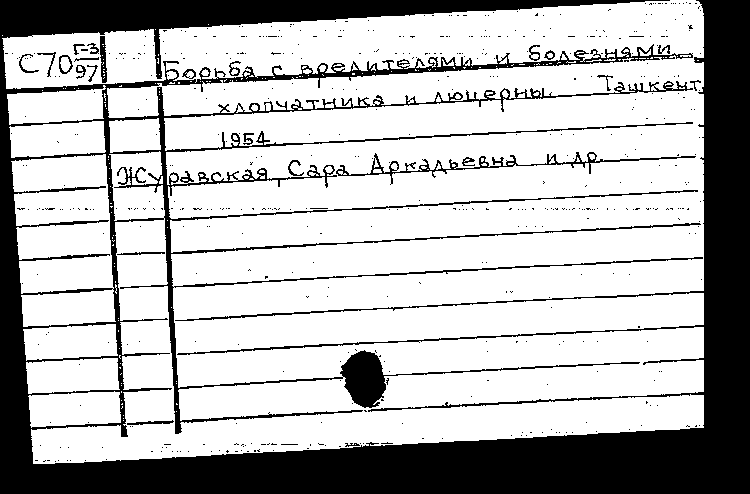 С70 Г-3/97
Борьба с вредителями и болезнями
хлопчатника и люцерны. Ташкент,
1954.
Журавская, Сара Аркадьевна и др.